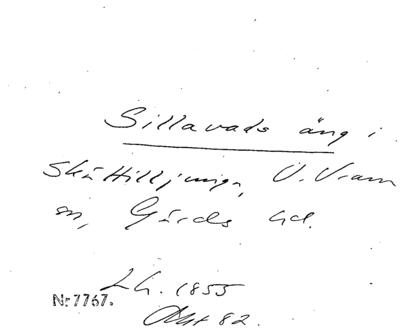 Sillavads äng i
Skättilljunga, Ö. Vram
sn, Gärds hd.
Lh. 1855
Nr 7767.
Akt 82.